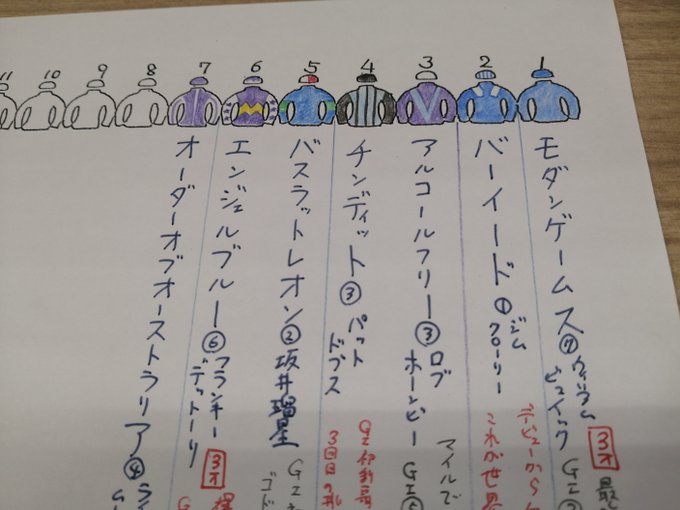 1
2
3
4
5
6
7
8
9
10
11
モダンゲームス⑦ウィリアム
ビュイック
3才
最
GI
デビューから
バーイード①ジム
クローリー
これが世界
アルコールフリー③ロブ
ホーンビー
マイルで
GI
チンディット③パット
ドブス
GI初
3回目の
バスラットレオン②坂井瑠星
GI
ゴド
エンジェルブルー⑥フランキー
デットーリ
3才
オーダーオブオーストラリア④ライ